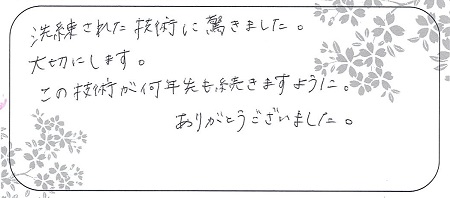 洗練された技術に驚きました。
大切にします。
この技術が何年先も続きますように。
ありがとうございました。